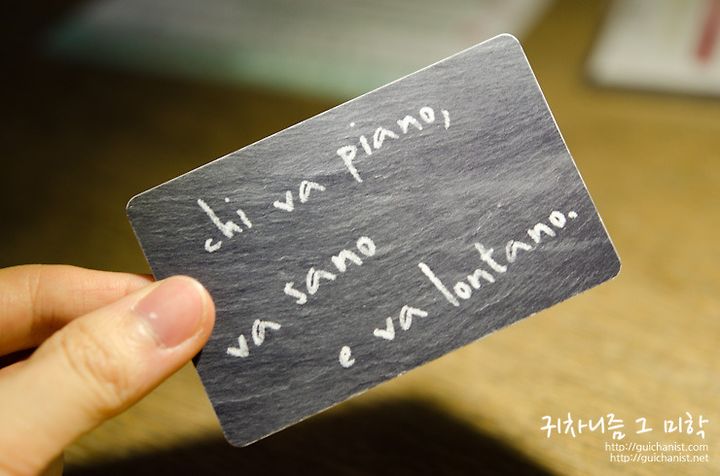 chi va piano,
va sano
e va lontano.
귀차니즘 그 미학
http://guichanist.com
http://guichanist.net